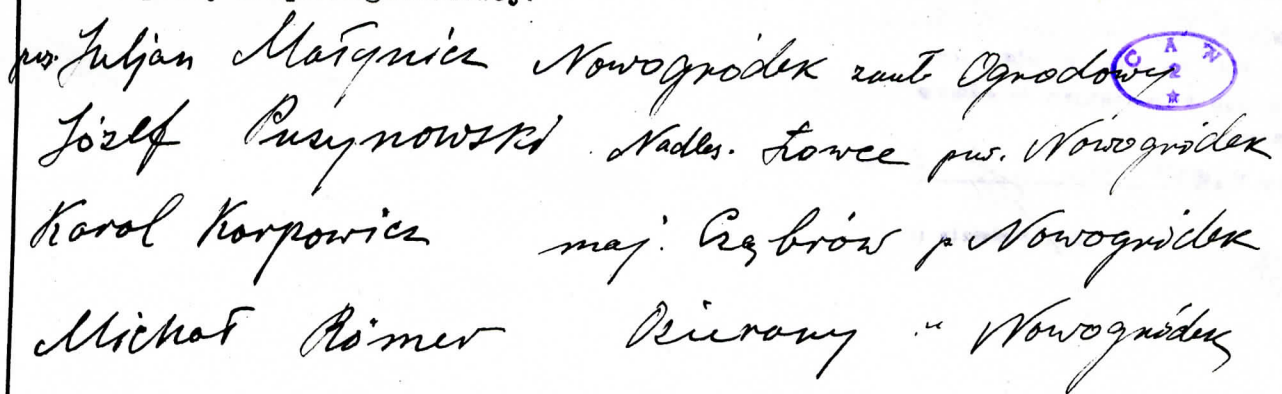 Juljan Małynicz Nowogródek zauł. Ogrodowy
CAW
2
Józef Puszynowski Nadleś. Łowce pow. Nowogródek
Karol Karpowicz maj. Cząbrów p. Nowogródek
Michał Römer Ozierany " Nowogródek